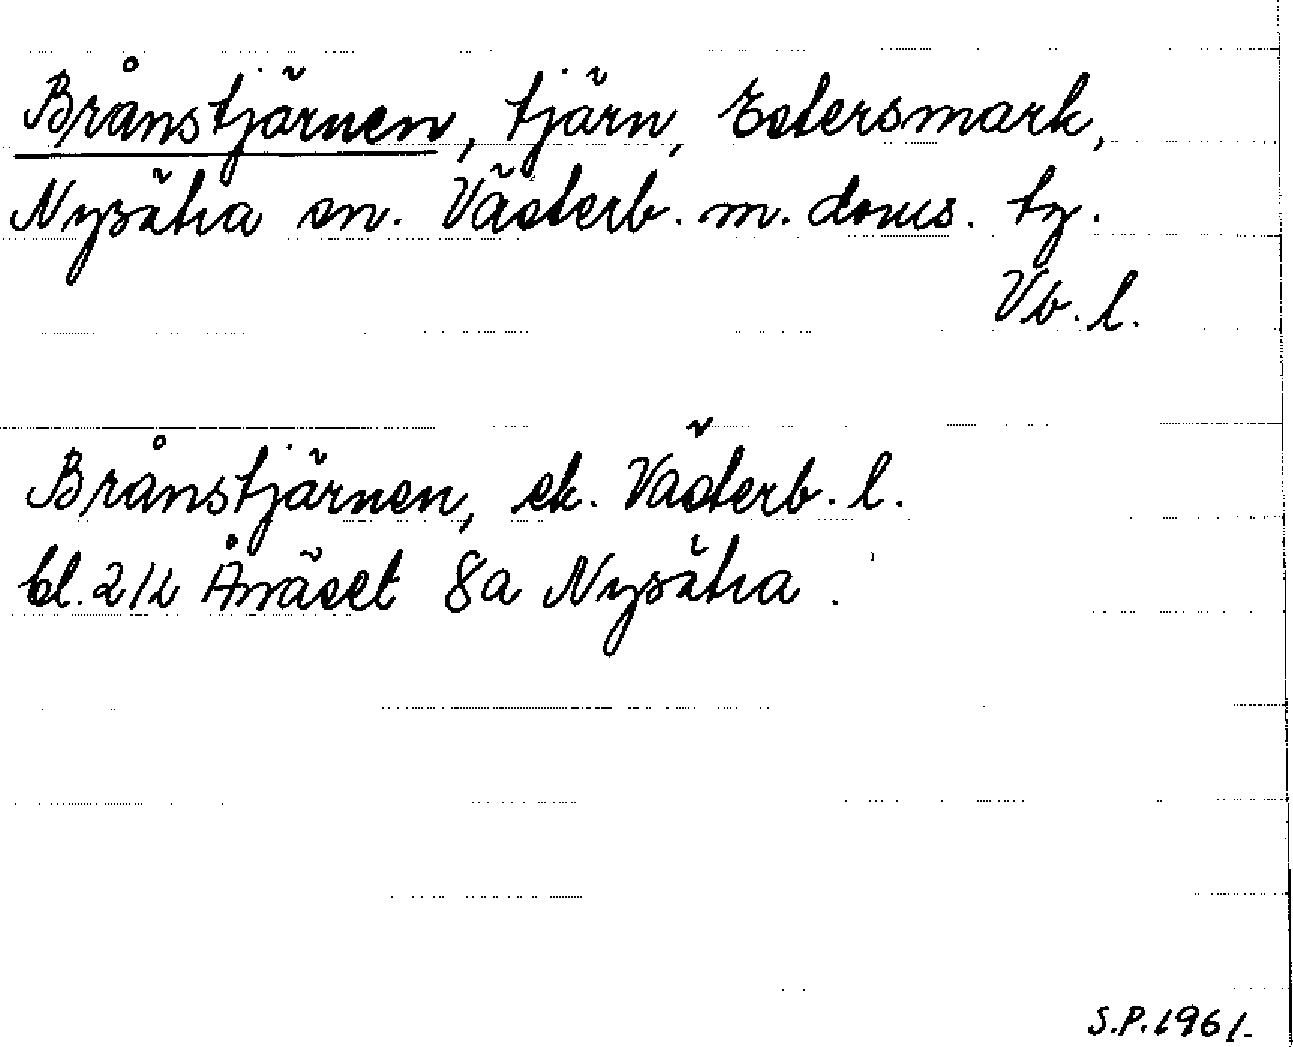 Brånstjärnen, tjärn, Estersmark,
Nysätra sn. Västerb. m. doms. tg.
Vb. l.
Brånstjärnen, ek. Västerb. l.
bl. 212 Ånäset 8a Nysätra.
S.P. 1961.